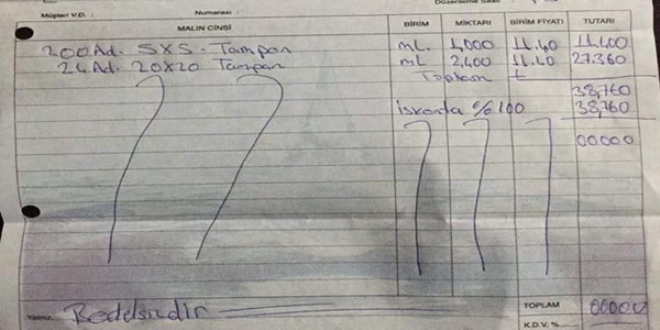 Müşteri V.D. : Numarası :
MALIN CİNSİ BİRİM MİKTARI BİRİM FİYATI TUTARI
200 Ad. 5x5 Tampon mL. 1,000 11.40 11.400
24 Ad. 20x20 Tampon mL 2,400 11.40 27.360
Toplam t
38,760
İskonta % 100 38,760
00000
Yalnız. Bedelsizdir TOPLAM 00000
K.D.V. %